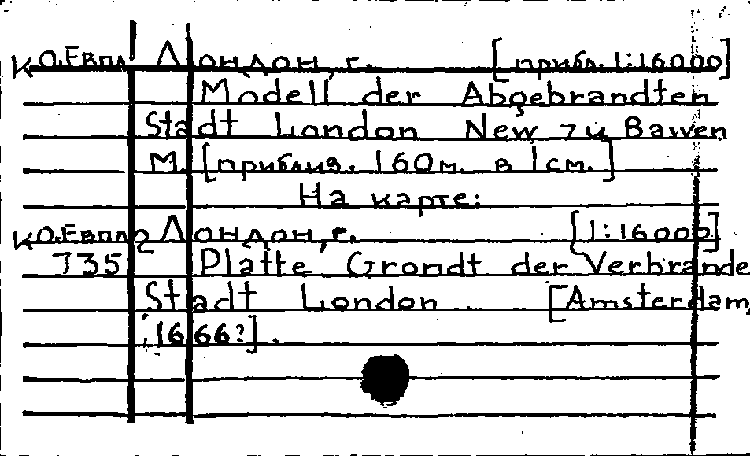 К О.Евпл Лондон, г. [прибл. 1:16000]
Modell der Abgebrandten
Stadt London New zu Bawen
М. [приблиз. 160м. в 1см.]
На карте:
К О.Евпл 2 Лондон, г. [1:16000]
735 Platte Grondt der Verbrande
Stadt London. [Amsterdam,
1666?].